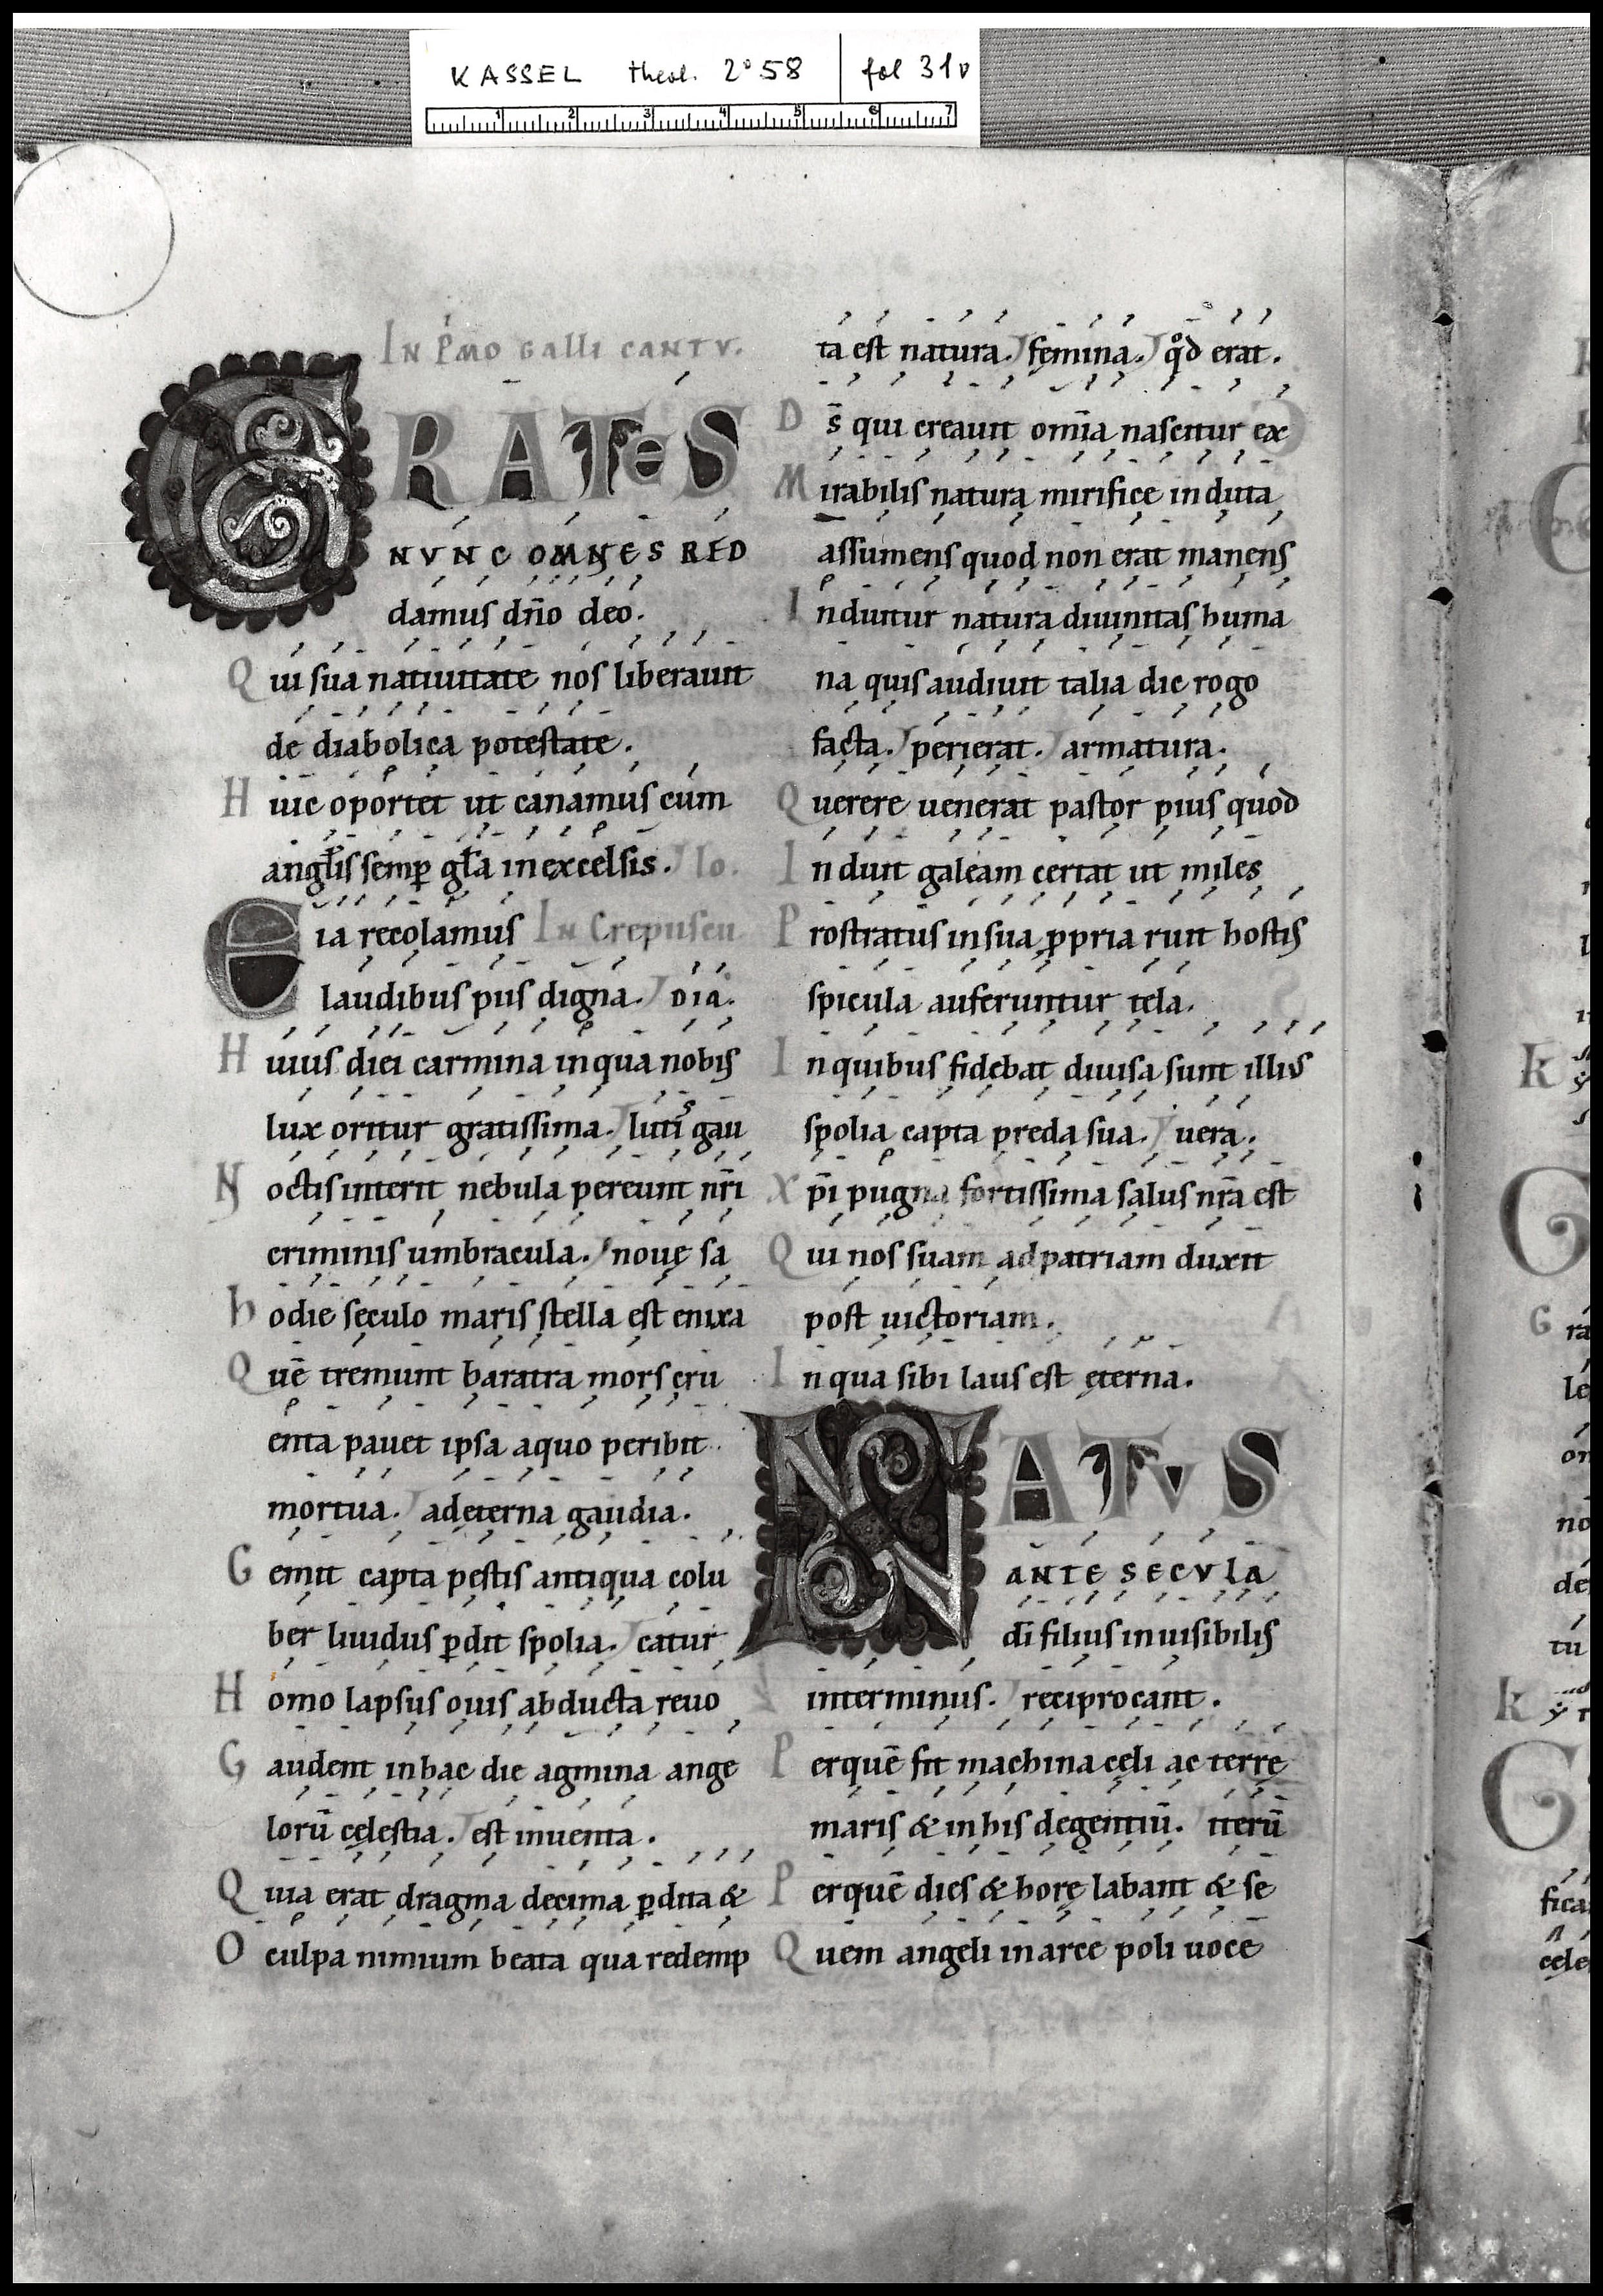 KASSEL theol. 2° 58 fol 31v
1 2 3 4 5 6 7
IN P̄MO GALLI CANTV.
GRATES
NVNC OMNES RED
damus dn̄o deo.
Qui sua natiuitate nos liberauit
de diabolica potestate.
Huic oportet ut canamus cum
angl̄is semꝑ gl̄a in excelsis. lo.
Eia recolamus IN Crepuscu
laudibus piis digna. DIA.
Huius diei carmina in qua nobis
lux oritur gratissima. gau
Noctis interit nebula pereunt nr̄i
criminis umbracula. nouę sa
hodie sęculo maris stella est enixa
Quē tremunt baratra mors cru
enta pauet ipsa a quo peribit
mortua. ad ęterna gaudia.
Gemit capta pestis antiqua colu
ber liuidus ꝑdit spolia. catur
Homo lapsus ouis abducta reuo
Gaudent in hac die agmina ange
lorū cęlestia. est inuenta.
Quia erat dragma decima ꝑdita &
O culpa nimium beata qua redemp
ta est natura. femina. qd̊ erat.
Ds̄ qui creauit om̄ia nascitur ex
Mirabilis natura mirifice induta
assumens quod non erat manens
Induitur natura diuinitas huma
na quis audiuit talia dic rogo
facta. perierat. armatura.
Querere uenerat pastor pius quod
Induit galeam certat ut miles
Prostratus in sua ꝓpria ruit hostis
spicula auferuntur tela.
In quibus fidebat diuisa sunt illius
spolia capta preda sua. uera.
Xp̄i pugna fortissima salus nr̄a est
Qui nos suam ad patriam duxit
post uictoriam.
In qua sibi laus est ęterna.
NATVS
ANTE SECVLA
di̅ filius inuisibilis
interminus. reciprocant.
Per quē fit machina cęli ac terrę
maris & in his degentiū. iterū
Per quē dies & horę labant & se
Quem angeli in arce poli uoce